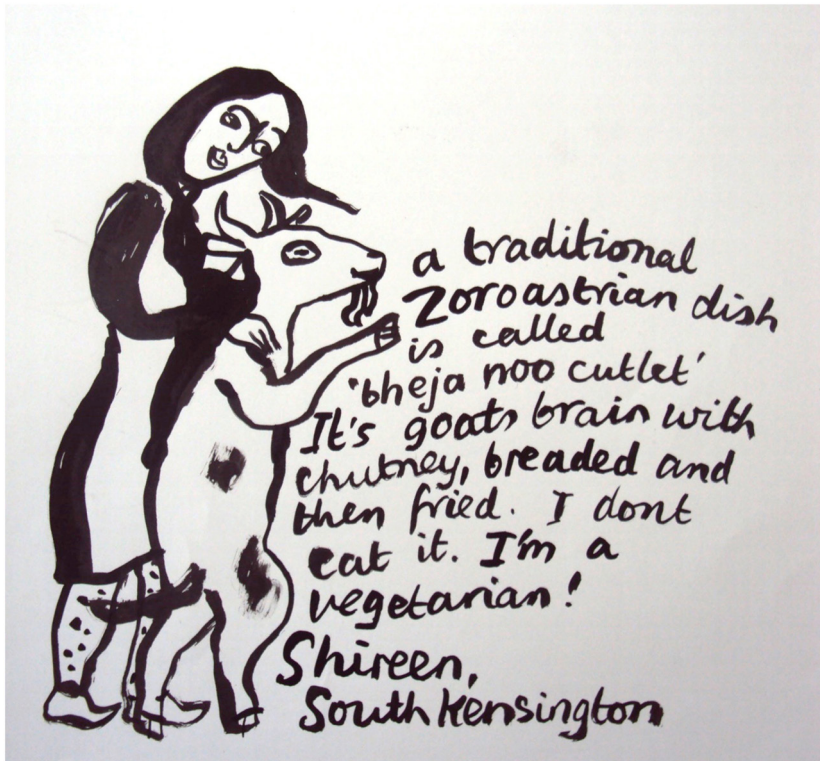 a traditional
Zoroastrian dish
is called
'bheja noo cutlet'
It's goats brain with
chutney, breaded and
then fried. I dont
eat it. I'm a
vegetarian!
Shireen,
South Kensington